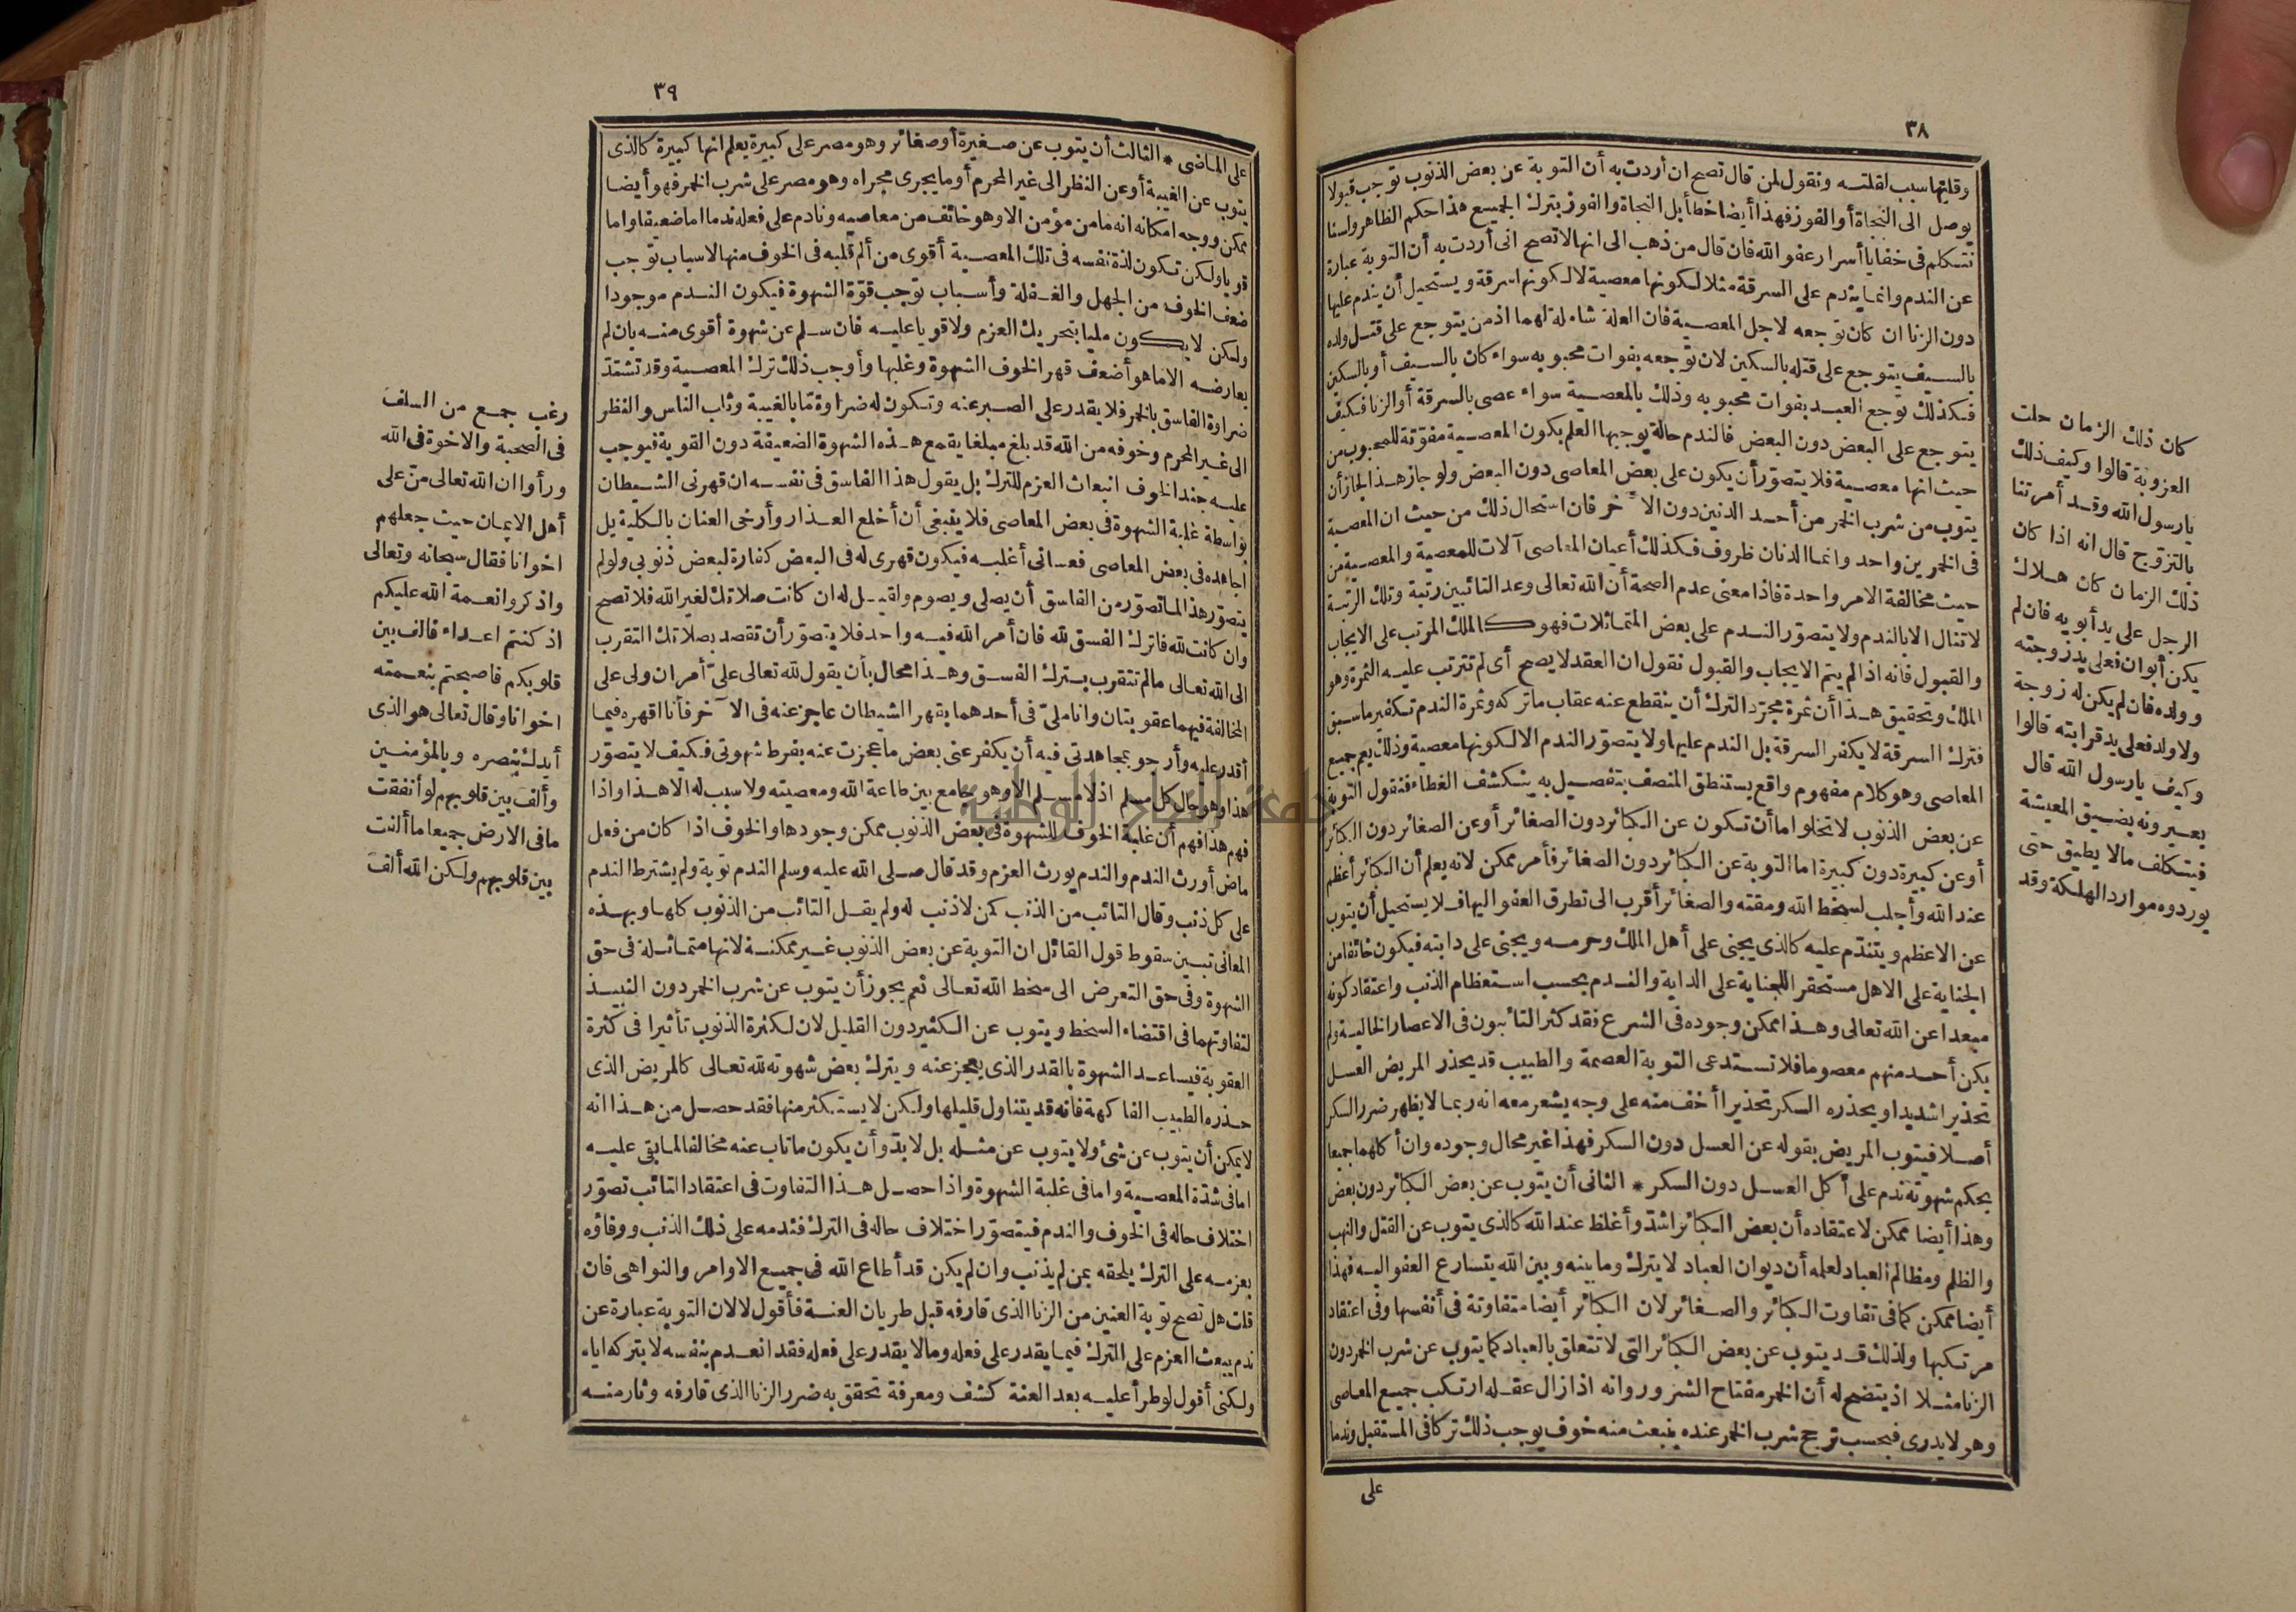 ٣٨
وقلتها سبب لقلته ونقول لمن قال تصح ان أردت به أن التوبة عن بعض الذنوب توجب قبولا
يوصل الى النجاة أو الفوز فهذا أيضا خطأ بل النجاة والفوز بترك الجميع هذا حكم الظاهر ولسنا
نتكلم فى خفايا أسرار عفو الله فان قال من ذهب الى انها لا تصح انى أردت به أن التوبة عبارة
عن الندم وانما يندم على السرقة مثلا لكونها معصية لا لكونها سرقة ويستحيل أن يندم عليها
دون الزنا ان كان توجعه لاجل المعصية فان العلة شاملة لهما اذ من يتوجع على قتل ولده
بالسيف يتوجع على قتله بالسكين لان توجعه بفوات محبوبه سواء كان بالسيف أو بالسكين
فكذلك توجع العبد بفوات محبوبه وذلك بالمعصية سواء عصى بالسرقة أو الزنا فكيف
يتوجع على البعض دون البعض فالندم حالة يوجبها العلم بكون المعصية مفوّتة للمحبوب من
حيث انها معصية فلا يتصوّر أن يكون على بعض المعاصى دون البعض ولو جاز هذا لجاز أن
يتوب من شرب الخمر من أحد الدنين دون الآخر فان استحال ذلك من حيث ان المعصية
فى الخمرين واحد وانما الدنان ظروف فكذلك أعيان المعاصى آلات للمعصية والمعصية من
حيث مخالفة الامر واحدة فاذا معنى عدم الصحة أن الله تعالى وعد التائبين رتبة وتلك الرتبة
لا تنال الا بالندم ولا يتصوّر الندم على بعض المتماثلات فهو كالملك المرتب على الايجاب
والقبول فانه اذا لم يتم الايجاب والقبول نقول ان العقد لا يصح أى لم تترتب عليه الثمرة وهو
الملك وتحقيق هذا أن ثمرة مجرّد الترك أن ينقطع عنه عقاب ما تركه وثمرة الندم تكفير ما سبق
فترك السرقة لا يكفر السرقة بل الندم عليها ولا يتصوّر الندم الا لكونها معصية وذلك يعم جميع
المعاصى وهو كلام مفهوم واقع يستنطق المنصف بتفصيل به ينكشف الغطاء فنقول التوبة
عن بعض الذنوب لا تخلو اما أن تكون عن الكبائر دون الصغائر أو عن الصغائر دون الكبائر
أو عن كبيرة دون كبيرة اما التوبة عن الكبائر دون الصغائر فأمر ممكن لانه يعلم أن الكبائر أعظم
عند الله وأجلب لسخط الله ومقته والصغائر أقرب الى تطرق العفو اليها فلا يستحيل أن يتوب
عن الاعظم ويتندّم عليه كالذى يجنى على أهل الملك وحرمه ويجنى على دابته فيكون خائفا من
الجناية على الاهل مستحقرا للجناية على الدابة والندم بحسب استعظام الذنب واعتقاد كونه
مبعدا عن الله تعالى وهذا ممكن وجوده فى الشرع فقد كثر التائبون فى الاعصار الخالية ولم
يكن أحد منهم معصوما فلا تستدعى التوبة العصمة والطبيب قد يحذر المريض العسل
تحذيرا شديدا ويحذره السكر تحذيرا أخف منه على وجه يشعر معه انه ربما لا يظهر ضرر السكر
أصلا فيتوب المريض بقوله عن العسل دون السكر فهذا غير محال وجوده وان أكلهما جميعا
بحكم شهوته ندم على أكل العسل دون السكر * الثانى أن يتوب عن بعض الكبائر دون بعض
وهذا أيضا ممكن لاعتقاده أن بعض الكبائر اشدّ وأغلظ عند الله كالذى يتوب عن القتل والنهب
والظلم ومظالم العباد لعلمه أن ديوان العباد لا يترك وما بينه وبين الله يتسارع العفو اليه فهذا
أيضا ممكن كما فى تفاوت الكبائر والصغائر لان الكبائر أيضا متفاوتة فى أنفسها وفى اعتقاد
مرتكبها ولذلك قد يتوب عن بعض الكبائر التى لا تتعلق بالعباد كما يتوب عن شرب الخمر دون
الزنا مثلا اذ يتضح له أن الخمر مفتاح الشرور وانه اذا زال عقله ارتكب جميع المعاصى
وهو لا يدرى فبحسب ترجح شرب الخمر عنده ينبعث منه خوف يوجب ذلك تركا فى المستقبل وندما
على
كان ذلك الزمان حلت
العزوبة قالوا وكيف ذلك
يا رسول الله وقد أمرتنا
بالتزوّج قال انه اذا كان
ذلك الزمان كان هلاك
الرجل على يد أبويه فان لم
يكن أبوان فعلى يد زوجته
وولده فان لم يكن له زوجة
ولا ولد فعلى يد قرابته قالوا
وكيف يا رسول الله قال
يعيرونه بضيق المعيشة
فيتكلف ما لا يطيق حتى
يوردوه موارد الهلكة وقد
٣٩
على الماضى * الثالث أن يتوب عن صغيرة أو صغائر وهو مصر على كبيرة يعلم انها كبيرة كالذى
يتوب عن الغيبة أو عن النظر الى غير المحرم أو ما يجرى مجراه وهو مصر على شرب الخمر فهو أيضا
ممكن ووجه امكانه انه ما من مؤمن الا وهو خائف من معاصيه ونادم على فعله ندما اما ضعيفا واما
قويا ولكن تكون لذة نفسه فى تلك المعصية أقوى من ألم قلبه فى الخوف منها لاسباب توجب
ضعف الخوف من الجهل والغفلة وأسباب توجب قوّة الشهوة فيكون الندم موجودا
ولكن لا يكون مليا بتحريك العزم ولا قويا عليه فان سلم عن شهوة أقوى منه بان لم
يعارضه الا ما هو أضعف قهر الخوف الشهوة وغلبها وأوجب ذلك ترك المعصية وقد تشتدّ
ضراوة الفاسق بالخمر فلا يقدر على الصبر عنه وتكون له ضراوة مّا بالغيبة وثلب الناس والنظر
الى غير المحرم وخوفه من الله قد بلغ مبلغا يقمع هذه الشهوة الضعيفة دون القوية فيوجب
عليه جند الخوف انبعاث العزم للترك بل يقول هذا الفاسق فى نفسه ان قهرنى الشيطان
بواسطة غلبة الشهوة فى بعض المعاصى فلا ينبغى أن أخلع العذار وأرخى العنان بالكلية بل
أجاهده فى بعض المعاصى فعسانى أغلبه فيكون قهرى له فى البعض كفارة لبعض ذنوبى ولو لم
يتصوّر هذا لما تصوّر من الفاسق أن يصلى ويصوم ولقيل له ان كانت صلاتك لغير الله فلا تصح
وان كانت لله فاترك الفسق لله فان أمر الله فيه واحد فلا يتصوّر أن تقصد بصلاتك التقرب
الى الله تعالى ما لم تتقرب بترك الفسق وهذا محال بأن يقول لله تعالى علىّ أمران ولى على
المخالفة فيهما عقوبتان وانا ملىّ فى أحدهما بقهر الشيطان عاجز عنه فى الآخر فأنا اقهره فيما
أقدر عليه وأرجو بمجاهدتى فيه أن يكفر عنى بعض ما عجزت عنه بفرط شهوتى فكيف لا يتصوّر
هذا وهو حال كل مسلم اذ لا مسلم الا وهو جامع بين طاعة الله ومعصيته ولا سبب له الا هذا واذا
فهم هذا فهم أن غلبة الخوف للشهوة فى بعض الذنوب ممكن وجودها والخوف اذا كان من فعل
ماض أورث الندم والندم يورث العزم وقد قال صلى الله عليه وسلم الندم توبة ولم يشترط الندم
على كل ذنب وقال التائب من الذنب كمن لا ذنب له ولم يقل التائب من الذنوب كلها وبهذه
المعانى تبين سقوط قول القائل ان التوبة عن بعض الذنوب غير ممكنة لانها متماثلة فى حق
الشهوة وفى حق التعرض الى سخط الله تعالى نعم يجوز أن يتوب عن شرب الخمر دون النبيذ
لتفاوتهما فى اقتضاء السخط ويتوب عن الكثير دون القليل لان لكثرة الذنوب تأثيرا فى كثرة
العقوبة فيساعد الشهوة بالقدر الذى يعجز عنه ويترك بعض شهوته لله تعالى كالمريض الذى
حذره الطبيب الفاكهة فانه قد يتناول قليلها ولكن لا يستكثر منها فقد حصل من هذا انه
لا يمكن أن يتوب عن شئ ولا يتوب عن مثله بل لا بدّ وأن يكون ما تاب عنه مخالفا لما بقى عليه
اما فى شدّة المعصية واما فى غلبة الشهوة واذا حصل هذا التفاوت فى اعتقاد التائب تصوّر
اختلاف حاله فى الخوف والندم فيتصوّر اختلاف حاله فى الترك فندمه على ذلك الذنب ووفاؤه
بعزمه على الترك يلحقه بمن لم يذنب وان لم يكن قد أطاع الله فى جميع الاوامر والنواهى فان
قلت هل تصح توبة العنين من الزنا الذى قارفه قبل طريان العنة فأقول لا لان التوبة عبارة عن
ندم يبعث العزم على الترك فيما يقدر على فعله وما لا يقدر على فعله فقد انعدم بنفسه لا بتركه اياه
ولكنى أقول لو طرأ عليه بعد العنة كشف ومعرفة تحقق به ضرر الزنا الذى قارفه وثار منه
رغب جمع من السلف
فى الصحبة والاخوة فى الله
ورأوا ان الله تعالى منّ على
أهل الايمان حيث جعلهم
اخوانا فقال سبحانه وتعالى
واذكروا نعمة الله عليكم
اذ كنتم اعداء فالف بين
قلوبكم فاصبحتم بنعمته
اخوانا وقال تعالى هو الذى
أيدك بنصره وبالمؤمنين
وألف بين قلوبهم لو أنفقت
ما فى الارض جميعا ما ألفت
بين قلوبهم ولكن الله ألف
جامعة النجاح الوطنية